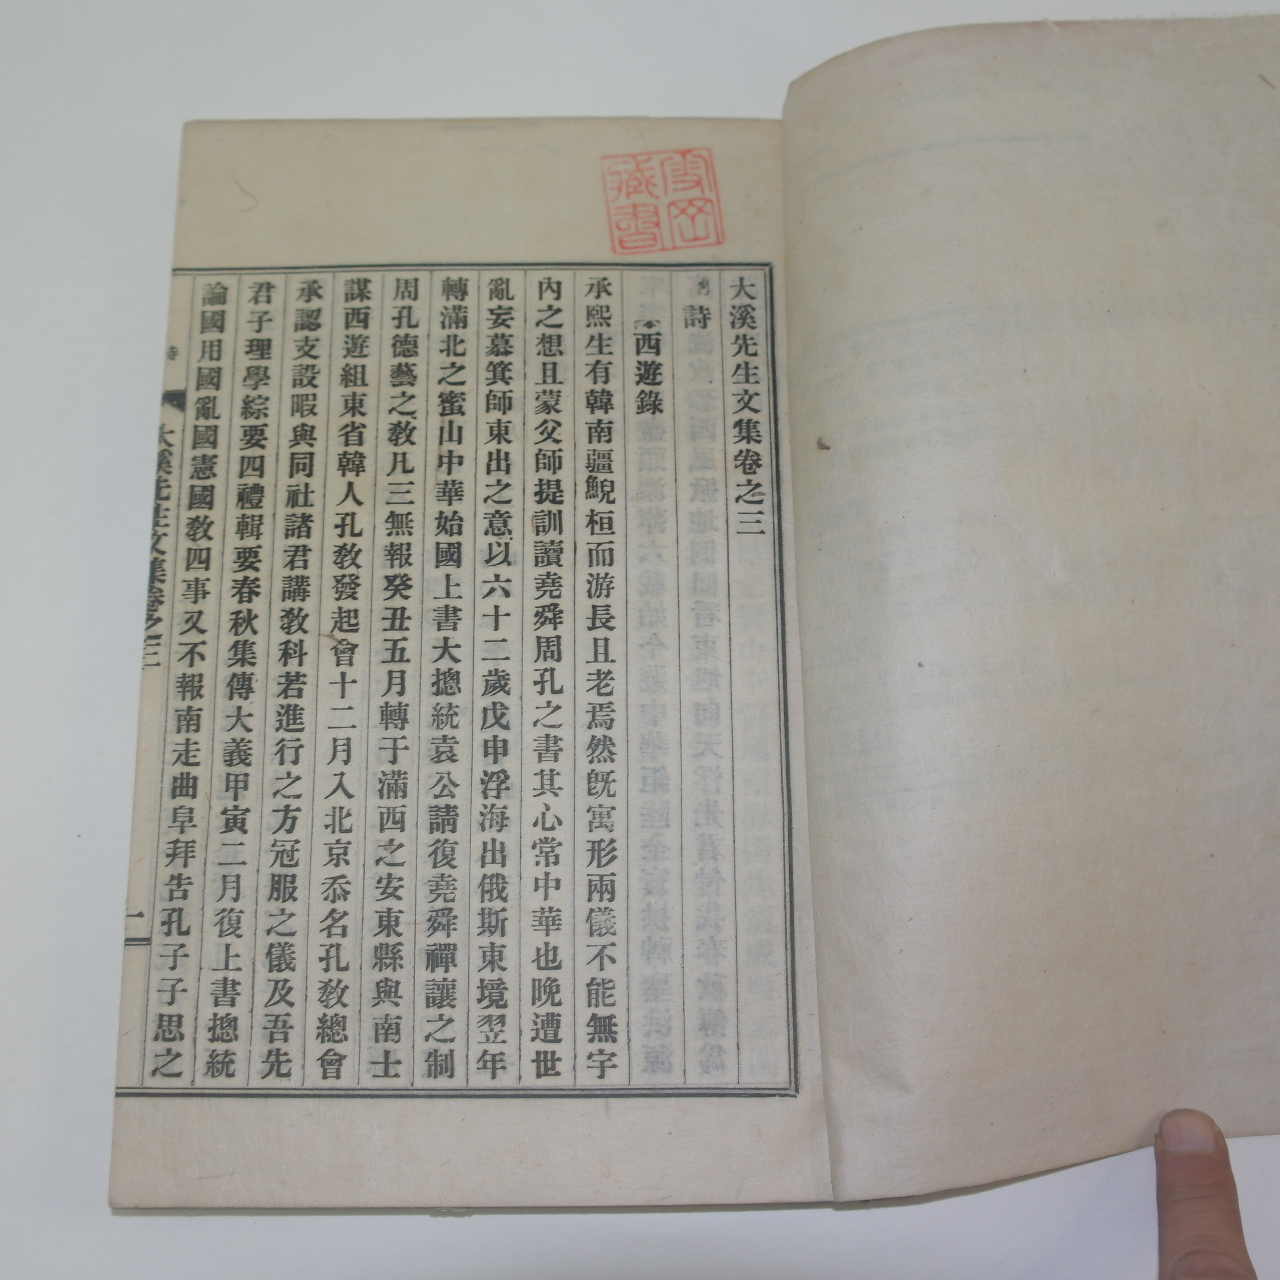 藏書
大溪先生文集卷之三
詩
西遊錄
承熙生有韓南疆鯢桓而游長且老焉然旣寓形兩儀不能無宇
內之想且蒙父師提訓讀堯舜周孔之書其心常中華也晩遭世
亂妄慕箕師東出之意以六十二歲戊申浮海出俄斯東境翌年
轉滿北之蜜山中華始國上書大摠統袁公請復堯舜禪讓之制
周孔德藝之敎凡三無報癸丑五月轉于滿西之安東縣與南士
謀西遊組東省韓人孔敎發起會十二月入北京忝名孔敎總會
承認支設暇與同社諸君講敎科若進行之方冠服之儀及吾先
君子理學綜要四禮輯要春秋集傳大義甲寅二月復上書摠統
論國用國亂國憲國敎四事又不報南走曲阜拜告孔子子思之
詩
大溪先生文集卷之三
一